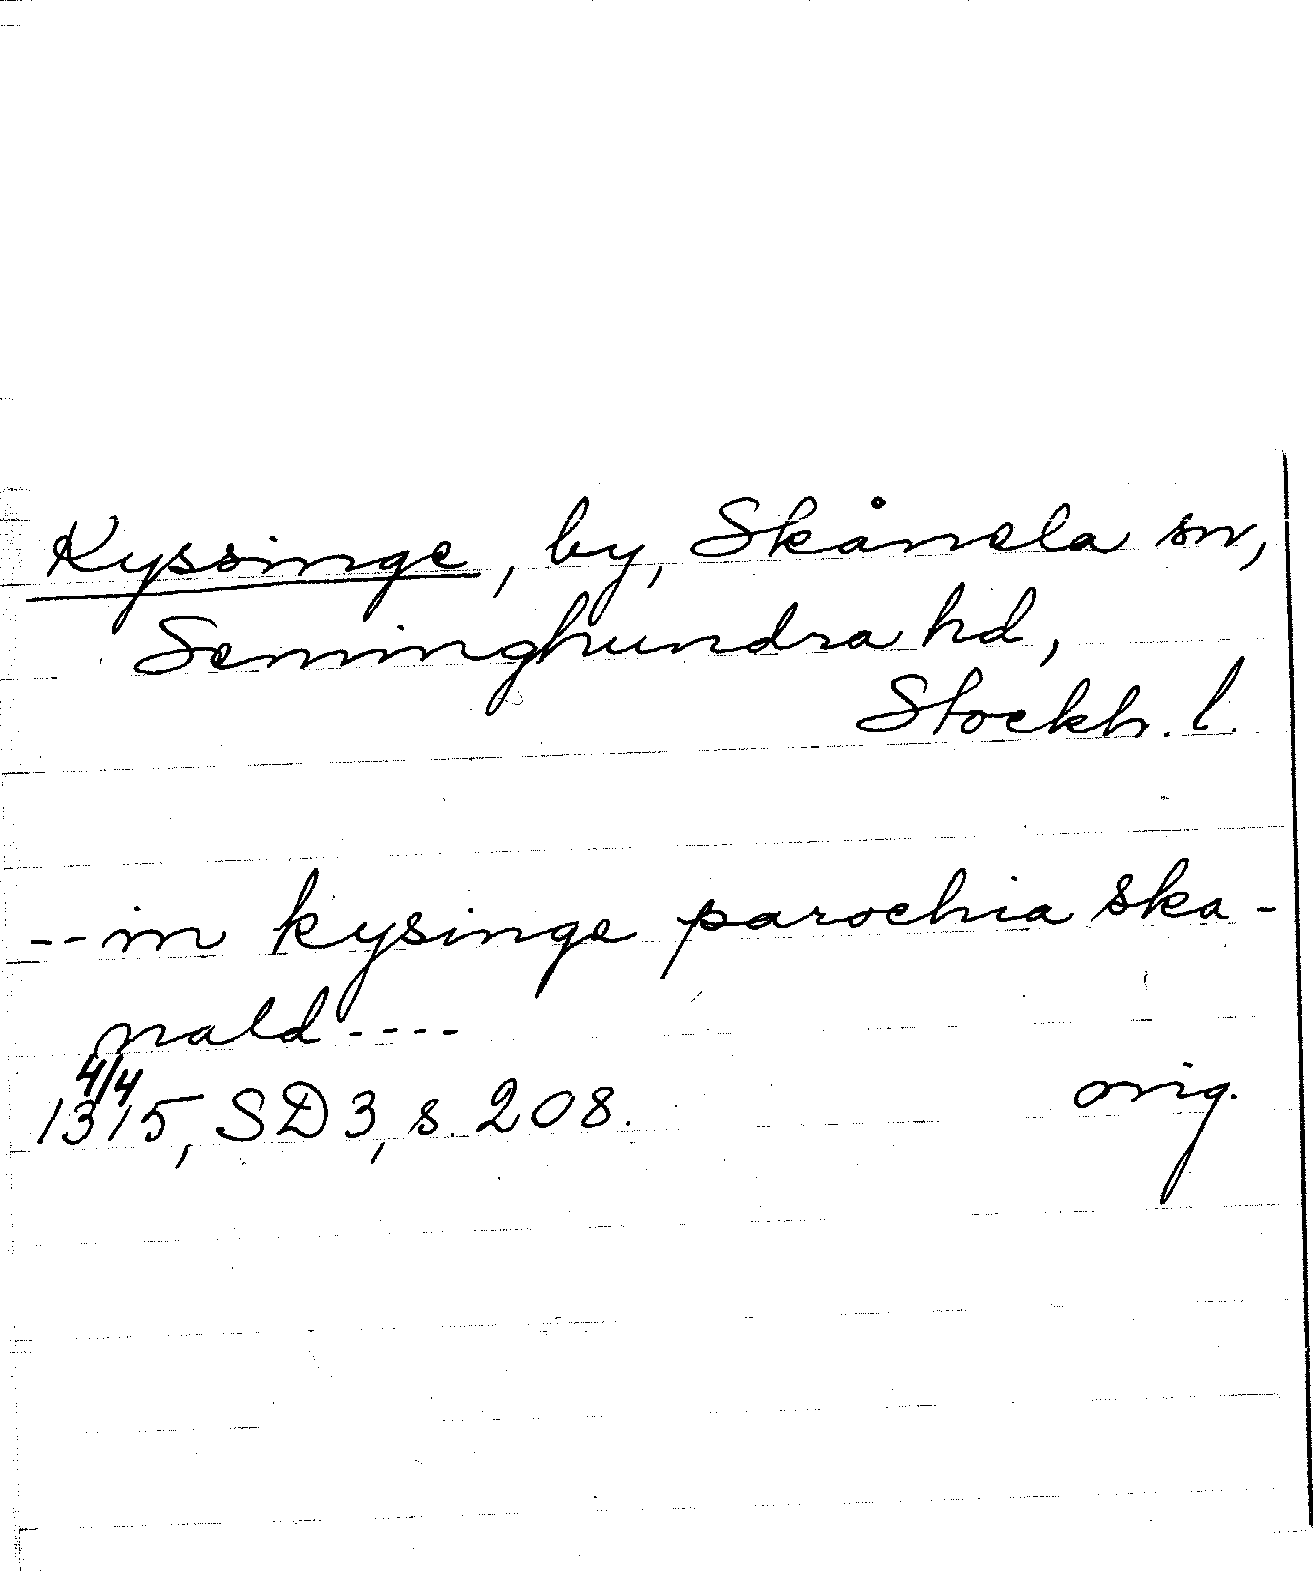 Kyssinge, by, Skånela sn,
Seminghundra hd,
Stockh. l.
-- in kysinge parochia ska-
nald ----
4/4
1315, SD 3, s. 208. orig.